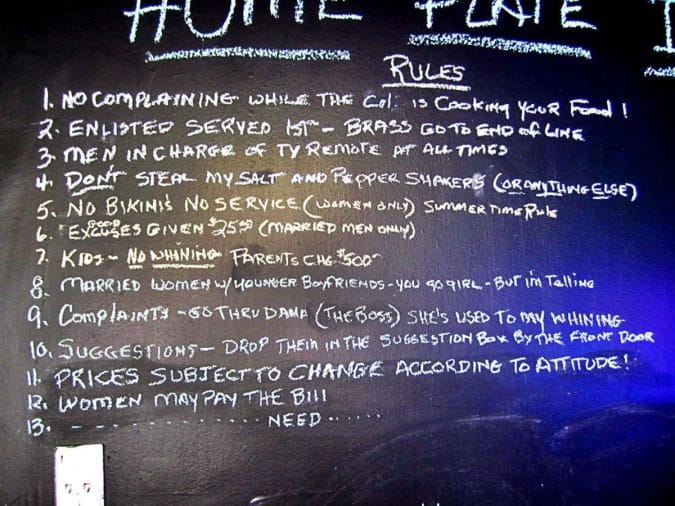 HOME PLATE
RULES
1. NO COMPLAINING WHILE THE Col. IS COOKING YOUR FOOD!
2. ENLISTED SERVED 1ST - BRASS GO TO END OF LINE
3. MEN IN CHARGE OF TV REMOTE AT ALL TIMES
4. DON'T STEAL MY SALT AND PEPPER SHAKERS (OR ANYTHING ELSE)
5. NO BIKINIS NO SERVICE (WOMEN ONLY) SUMMERTIME RULE
6. GOOD EXCUSES GIVEN $25.00 (MARRIED MEN ONLY)
7. KIDS - NO WHINING PARENTS CHG. $5.00
8. MARRIED WOMEN W/YOUNGER BOYFRIENDS - YOU GO GIRL - BUT I'm Telling
9. COMPLAINTS - GO THRU DAMA (THE BOSS) SHE'S USED TO MY WHINING
10. SUGGESTIONS - DROP THEM IN THE SUGGESTION BOX BY THE FRONT DOOR
11. PRICES SUBJECT TO CHANGE ACCORDING TO ATTITUDE!
12. WOMEN MAY PAY THE BILL
13. - - - - - - - - - - - - NEED - - - - -